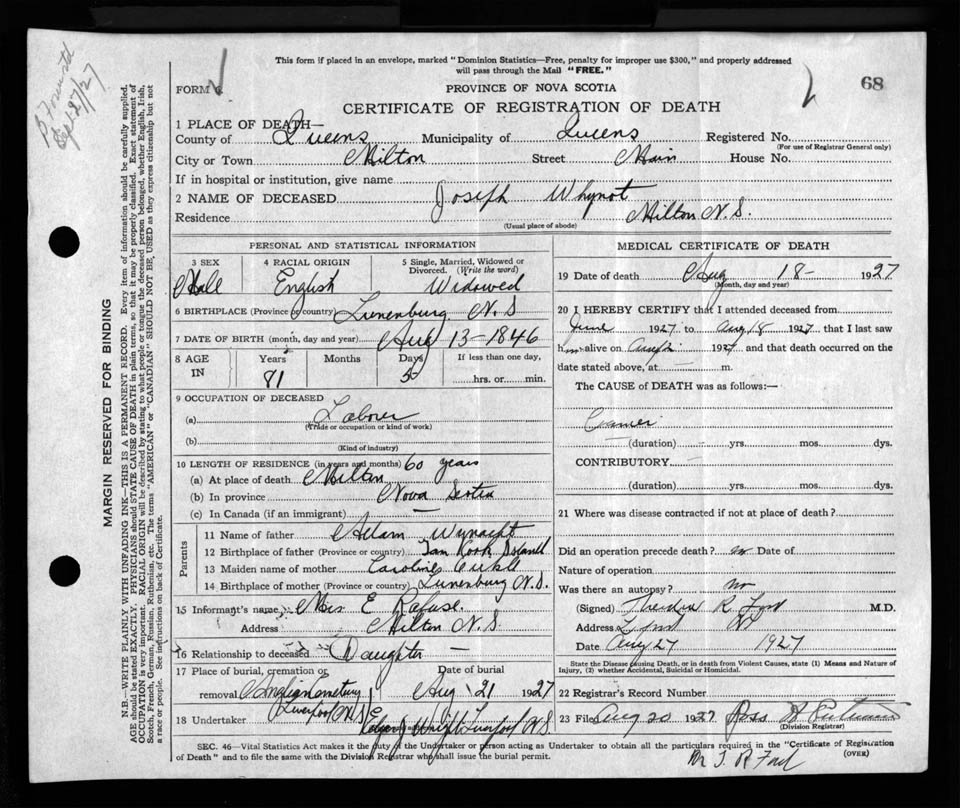 This form if placed in an envelope, marked "Dominion Statistics—Free, penalty for improper use $300," and properly addressed
will pass through the Mail "FREE."
FORM
PROVINCE OF NOVA SCOTIA
68
CERTIFICATE OF REGISTRATION OF DEATH
1 PLACE OF DEATH—
County of Queens Municipality of Queens Registered No.
(For use of Registrar General only)
City or Town Milton Street Main House No.
If in hospital or institution, give name
2 NAME OF DECEASED Joseph Whynot
Residence Milton N.S.
(Usual place of abode)
PERSONAL AND STATISTICAL INFORMATION
3 SEX 4 RACIAL ORIGIN 5 Single, Married, Widowed or
Divorced. (Write the word)
Male English Widowed
6 BIRTHPLACE (Province or country) Lunenburg N.S
7 DATE OF BIRTH (month, day and year) Aug 13-1846
8 AGE Years Months Days If less than one day,
IN 81 5 hrs. or min.
9 OCCUPATION OF DECEASED
(a) Laborer
(Trade or occupation or kind of work)
(b)
(Kind of industry)
10 LENGTH OF RESIDENCE (in years and months) 60 years
(a) At place of death Milton
(b) In province Nova Scotia
(c) In Canada (if an immigrant) —
Parents
11 Name of father Adam Wynacht
12 Birthplace of father (Province or country) Tan Cook Island
13 Maiden name of mother Caroline
14 Birthplace of mother (Province or country) Lunenburg N.S.
15 Informant's name Mrs. E Rafuse.
Address Milton N.S.
16 Relationship to deceased Daughter —
17 Place of burial, cremation or Date of burial
removal Cemetery Aug 21 1927
Liverpool N.S.
18 Undertaker Liverpool N.S.
MEDICAL CERTIFICATE OF DEATH
19 Date of death Aug 18- 1927
(Month, day and year)
20 I HEREBY CERTIFY that I attended deceased from
June 1927 to Aug 18 1927 that I last saw
him alive on 1927 and that death occurred on the
date stated above, at — m.
The CAUSE of DEATH was as follows:—
Cancer
(duration) yrs. mos. dys.
CONTRIBUTORY
(duration) yrs. mos. dys.
21 Where was disease contracted if not at place of death?
Did an operation precede death? no Date of
Nature of operation
Was there an autopsy? no
(Signed) R. Ford M.D.
Address
Date Aug 27 1927
State the Disease causing Death, or in death from Violent Causes, state (1) Means and Nature of
Injury, (2) whether Accidental, Suicidal or Homicidal.
22 Registrar's Record Number
23 Filed Aug 20 1927
(Division Registrar)
SEC. 46—Vital Statistics Act makes it the duty of the Undertaker or person acting as Undertaker to obtain all the particulars required in the "Certificate of Registration
of Death" and to file the same with the Division Registrar who shall issue the burial permit.
(OVER)
MARGIN RESERVED FOR BINDING
N.B.—WRITE PLAINLY WITH UNFADING INK—THIS IS A PERMANENT RECORD. Every item of information should be carefully supplied.
AGE should be stated EXACTLY. PHYSICIANS should STATE CAUSE OF DEATH in plain terms, so that it may be properly classified. Exact statement of
OCCUPATION is very important. RACIAL ORIGIN will be described by stating to what people or tongue the deceased person belonged, whether English, Irish,
Scotch, French, German, Russian, Ruthenian, etc. The terms "AMERICAN" or "CANADIAN" SHOULD NOT BE USED as they express citizenship but not
a race or people. See instructions on back of Certificate.
Sep 27/27